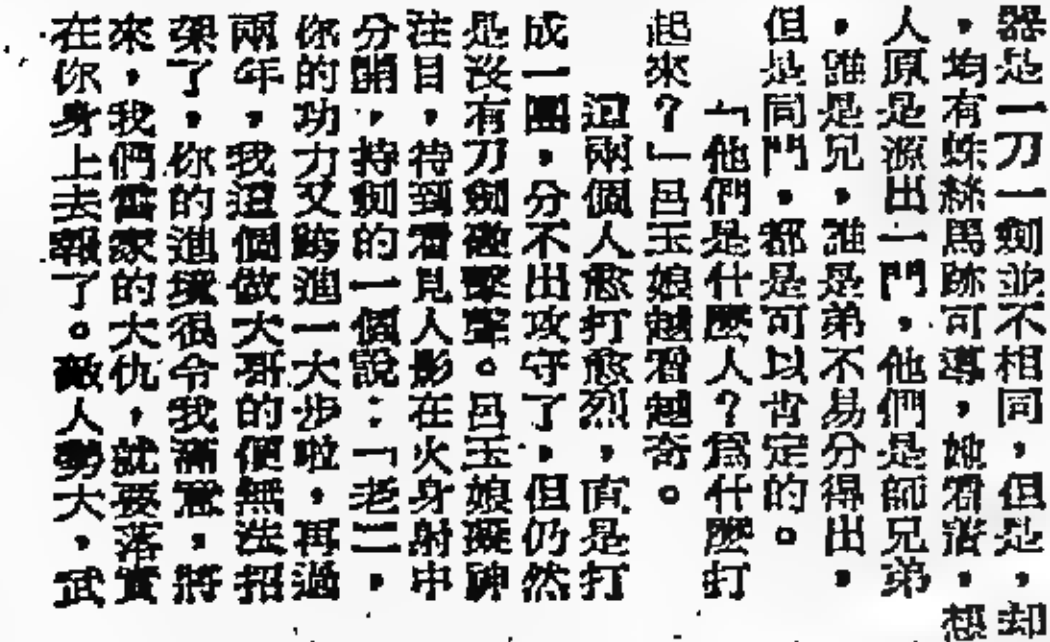 器是一刀一劍並不相同，但是，却
，均有蛛絲馬跡可導，她看清，想
人原是源出一門，他們是師兄弟
，誰是兄，誰是弟不易分得出，
但是同門，都是可以肯定的。
「他們是什麼人？爲什麼打
起來？」呂玉娘越看越奇。
這兩個人愈打愈烈，直是打
成一團，分不出攻守了，但仍然
是沒有刀劍碰擊聲。呂玉娘凝神
注目，待到看見人影在火身射中
分開，持劍的一個說：「老二，
你的功力又跨進一大步啦，再過
兩年，我這個做大哥的便無法招
架了，你的進境很令我滿意，將
來，我們雷家的大仇，就要落實
在你身上去報了。敵人勢大，武